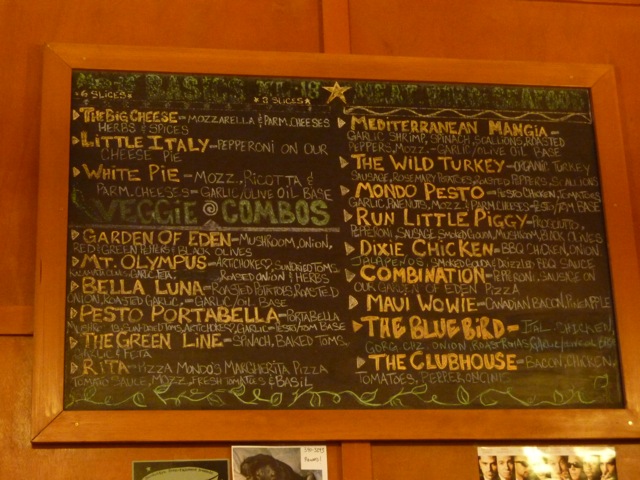 BASICS
6 SLICES
8 SLICES
THE BIG CHEESE - MOZZARELLA & PARM. CHEESES
HERBS & SPICES
LITTLE ITALY - PEPPERONI ON OUR
CHEESE PIE
WHITE PIE - MOZZ, RICOTTA &
PARM. CHEESES - GARLIC/OLIVE OIL BASE
VEGGIE COMBOS
GARDEN OF EDEN - MUSHROOM, ONION,
RED & GREEN PEPPERS & BLACK OLIVES
MT. OLYMPUS - ARTICHOKE, SUNDRIED TOMS
KALAMATA OLIVES, GARLIC, FETA, ROASTED ONION & HERBS
BELLA LUNA - ROASTED POTATOES, ROASTED
ONION, ROASTED GARLIC - GARLIC/OIL BASE
PESTO PORTABELLA - PORTABELLA
SUN-DRIED TOMS, ARTICHOKE, GARLIC - PESTO/TOM BASE
THE GREEN LINE - SPINACH, BAKED TOMS,
GARLIC & FETA
RITA - PIZZA MONDO'S MARGHERITA PIZZA
TOMATO SAUCE, MOZZ, FRESH TOMATOES & BASIL
MEDITERRANEAN MANGIA -
GARLIC SHRIMP, SPINACH, SCALLIONS, ROASTED
PEPPERS, MOZZ - GARLIC/OLIVE OIL BASE
THE WILD TURKEY - ORGANIC TURKEY
SAUSAGE, ROSEMARY POTATOES, ROASTED PEPPERS, SCALLIONS
MONDO PESTO - PESTO CHICKEN, TOMATOES
GARLIC, PINENUTS, MOZZ & PARM CHEESES - PESTO/TOM BASE
RUN LITTLE PIGGY - PROSCIUTTO,
PEPERONI, SAUSAGE, SMOKED GOUDA, MUSHROOM, BLACK OLIVES
DIXIE CHICKEN - BBQ CHICKEN, ONION
JALAPEÑOS, SMOKED GOUDA & Drizzled BBQ SAUCE
COMBINATION - PEPERONI, SAUSAGE ON
OUR GARDEN OF EDEN PIZZA
MAUI WOWIE - CANADIAN BACON, PINEAPPLE
THE BLUE BIRD - ITAL. CHICKEN,
GORG. CHZ, ONION, ROAST ROMAS
THE CLUBHOUSE - BACON, CHICKEN,
TOMATOES, PEPPERONCINIS